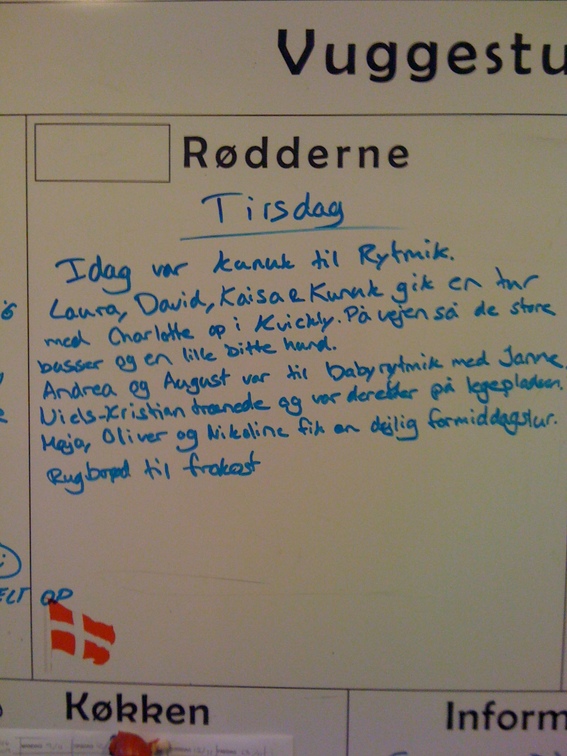 Vuggestu
Rødderne
Tirsdag
Idag var kanuk til Rytmik.
Laura, David, Kaisa & Kunuk gik en tur
med Charlotte op i Kvickly. På vejen så de store
busser og en lille bitte hund.
Andrea og August var til babyrytmik med Janne.
Niels-Kristian trænede og var derefter på legepladsen.
Maja, Oliver og Nikoline fik en dejlig formiddagslur.
Rugbrød til frokost
ELT OP
Køkken
Inform